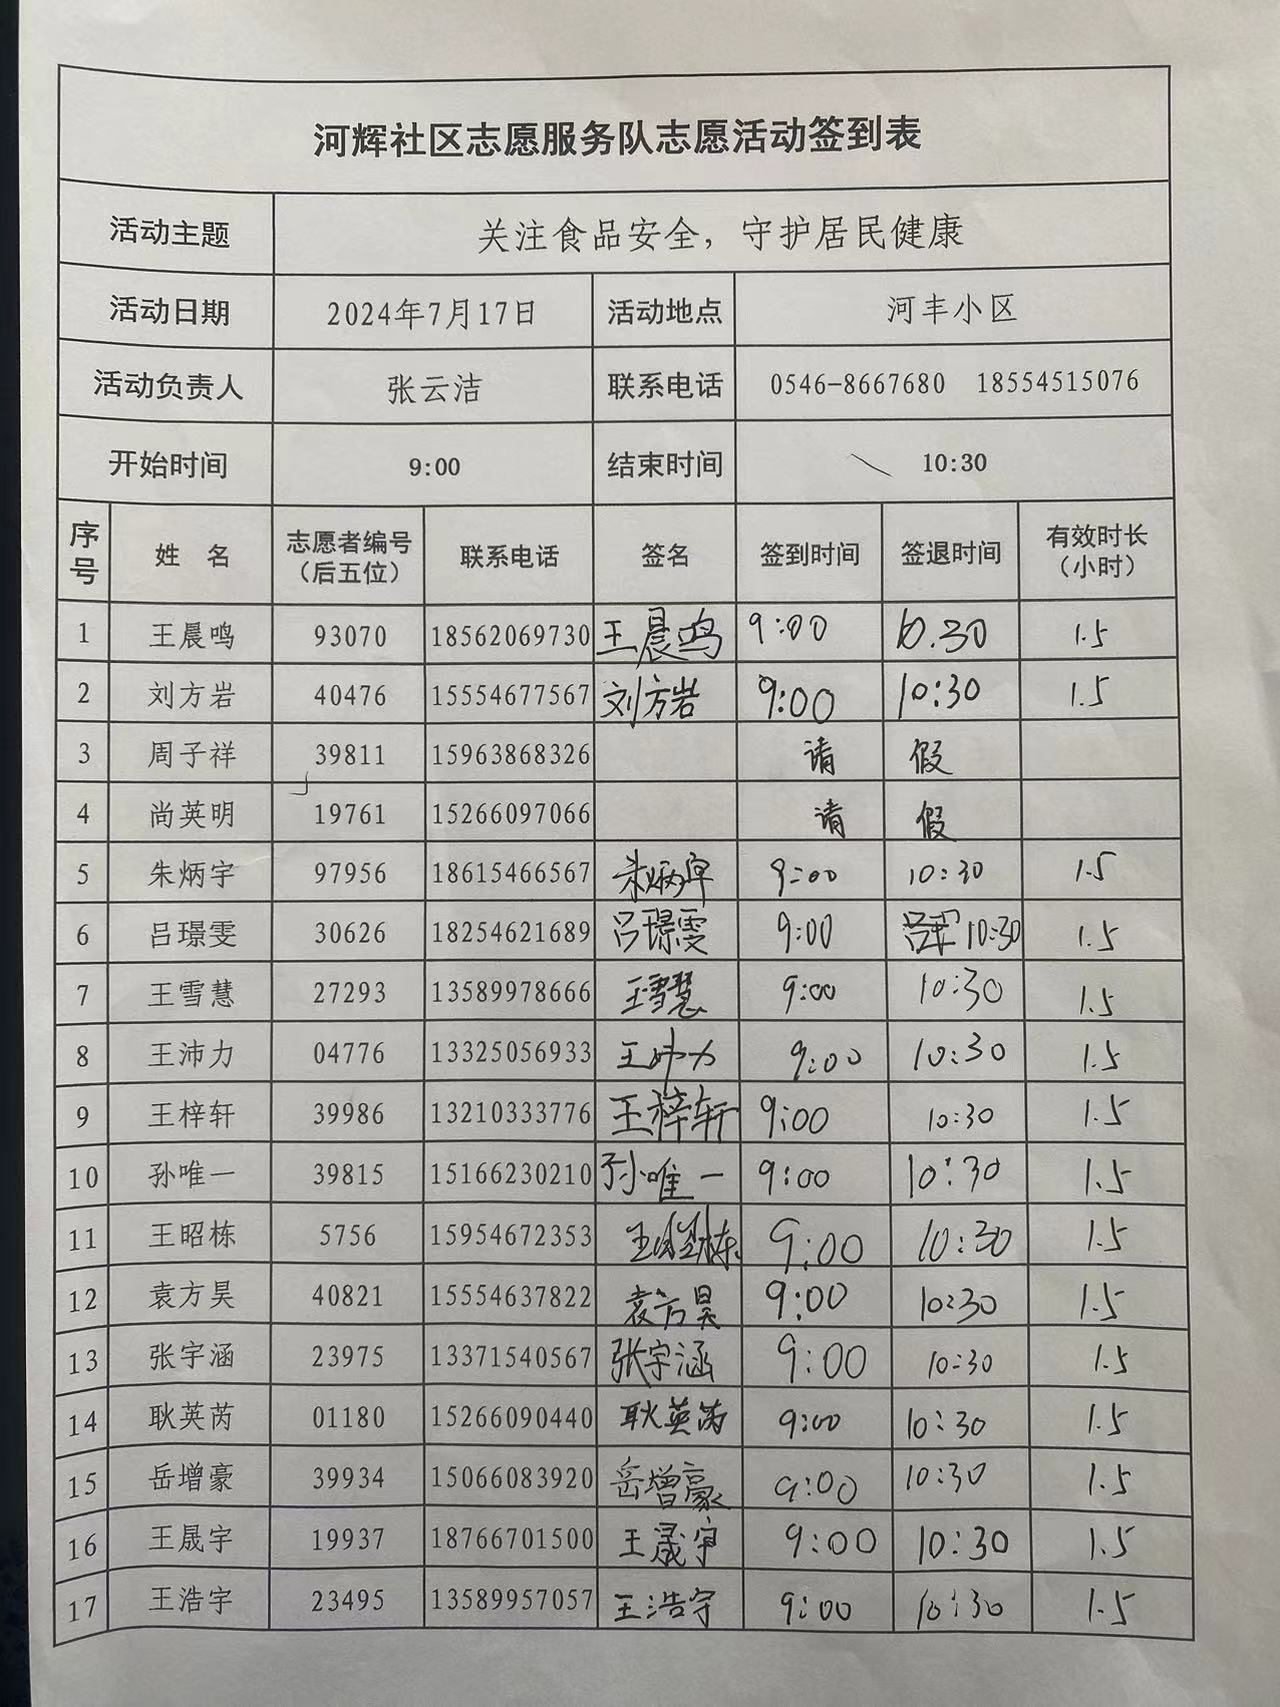 河辉社区志愿服务队志愿活动签到表
活动主题 关注食品安全，守护居民健康
活动日期 2024年7月17日 活动地点 河丰小区
活动负责人 张云洁 联系电话 0546-8667680 18554515076
开始时间 9:00 结束时间 10:30
序号 姓 名 志愿者编号（后五位） 联系电话 签名 签到时间 签退时间 有效时长（小时）
1 王晨鸣 93070 18562069730 王晨鸣 9:00 10.30 1.5
2 刘方岩 40476 15554677567 刘方岩 9:00 10:30 1.5
3 周子祥 39811 15963868326 请 假
4 尚英明 19761 15266097066 请 假
5 朱炳宇 97956 18615466567 朱炳宇 9:00 10:30 1.5
6 吕璟雯 30626 18254621689 吕璟雯 9:00 10:30 1.5
7 王雪慧 27293 13589978666 王雪慧 9:00 10:30 1.5
8 王沛力 04776 13325056933 王沛力 9:00 10:30 1.5
9 王梓轩 39986 13210333776 王梓轩 9:00 10:30 1.5
10 孙唯一 39815 15166230210 孙唯一 9:00 10:30 1.5
11 王昭栋 5756 15954672353 9:00 10:30 1.5
12 袁方昊 40821 15554637822 袁方昊 9:00 10:30 1.5
13 张宇涵 23975 13371540567 张宇涵 9:00 10:30 1.5
14 耿英芮 01180 15266090440 耿英芮 9:00 10:30 1.5
15 岳增豪 39934 15066083920 岳增豪 9:00 10:30 1.5
16 王晟宇 19937 18766701500 王晟宇 9:00 10:30 1.5
17 王浩宇 23495 13589957057 王浩宇 9:00 10:30 1.5